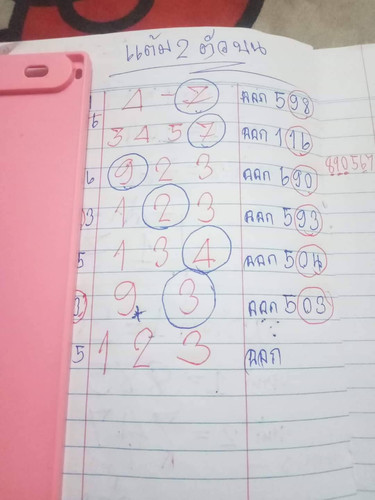 แต้ม 2 ตัวบน
4 - 7 ออก 598
3 4 5 7 ออก 116
6 9 2 3 ออก 690 890567
03 1 2 3 ออก 593
5 1 3 4 ออก 504
9 * 3 ออก 503
5 1 2 3 ออก